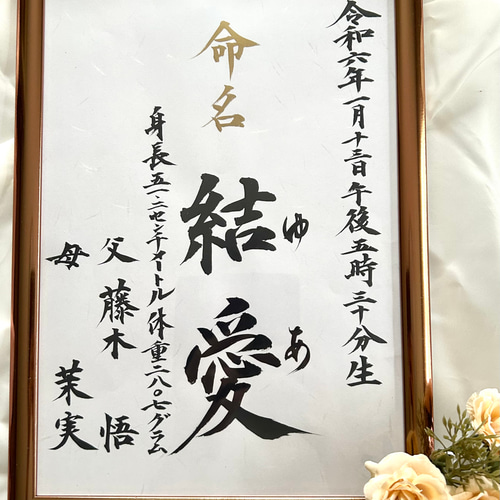 令和六年一月十三日午後五時三十分生
命名
結愛
ゆあ
身長五一・二センチメートル体重二八〇七グラム
父 藤木 悟
母 茉実